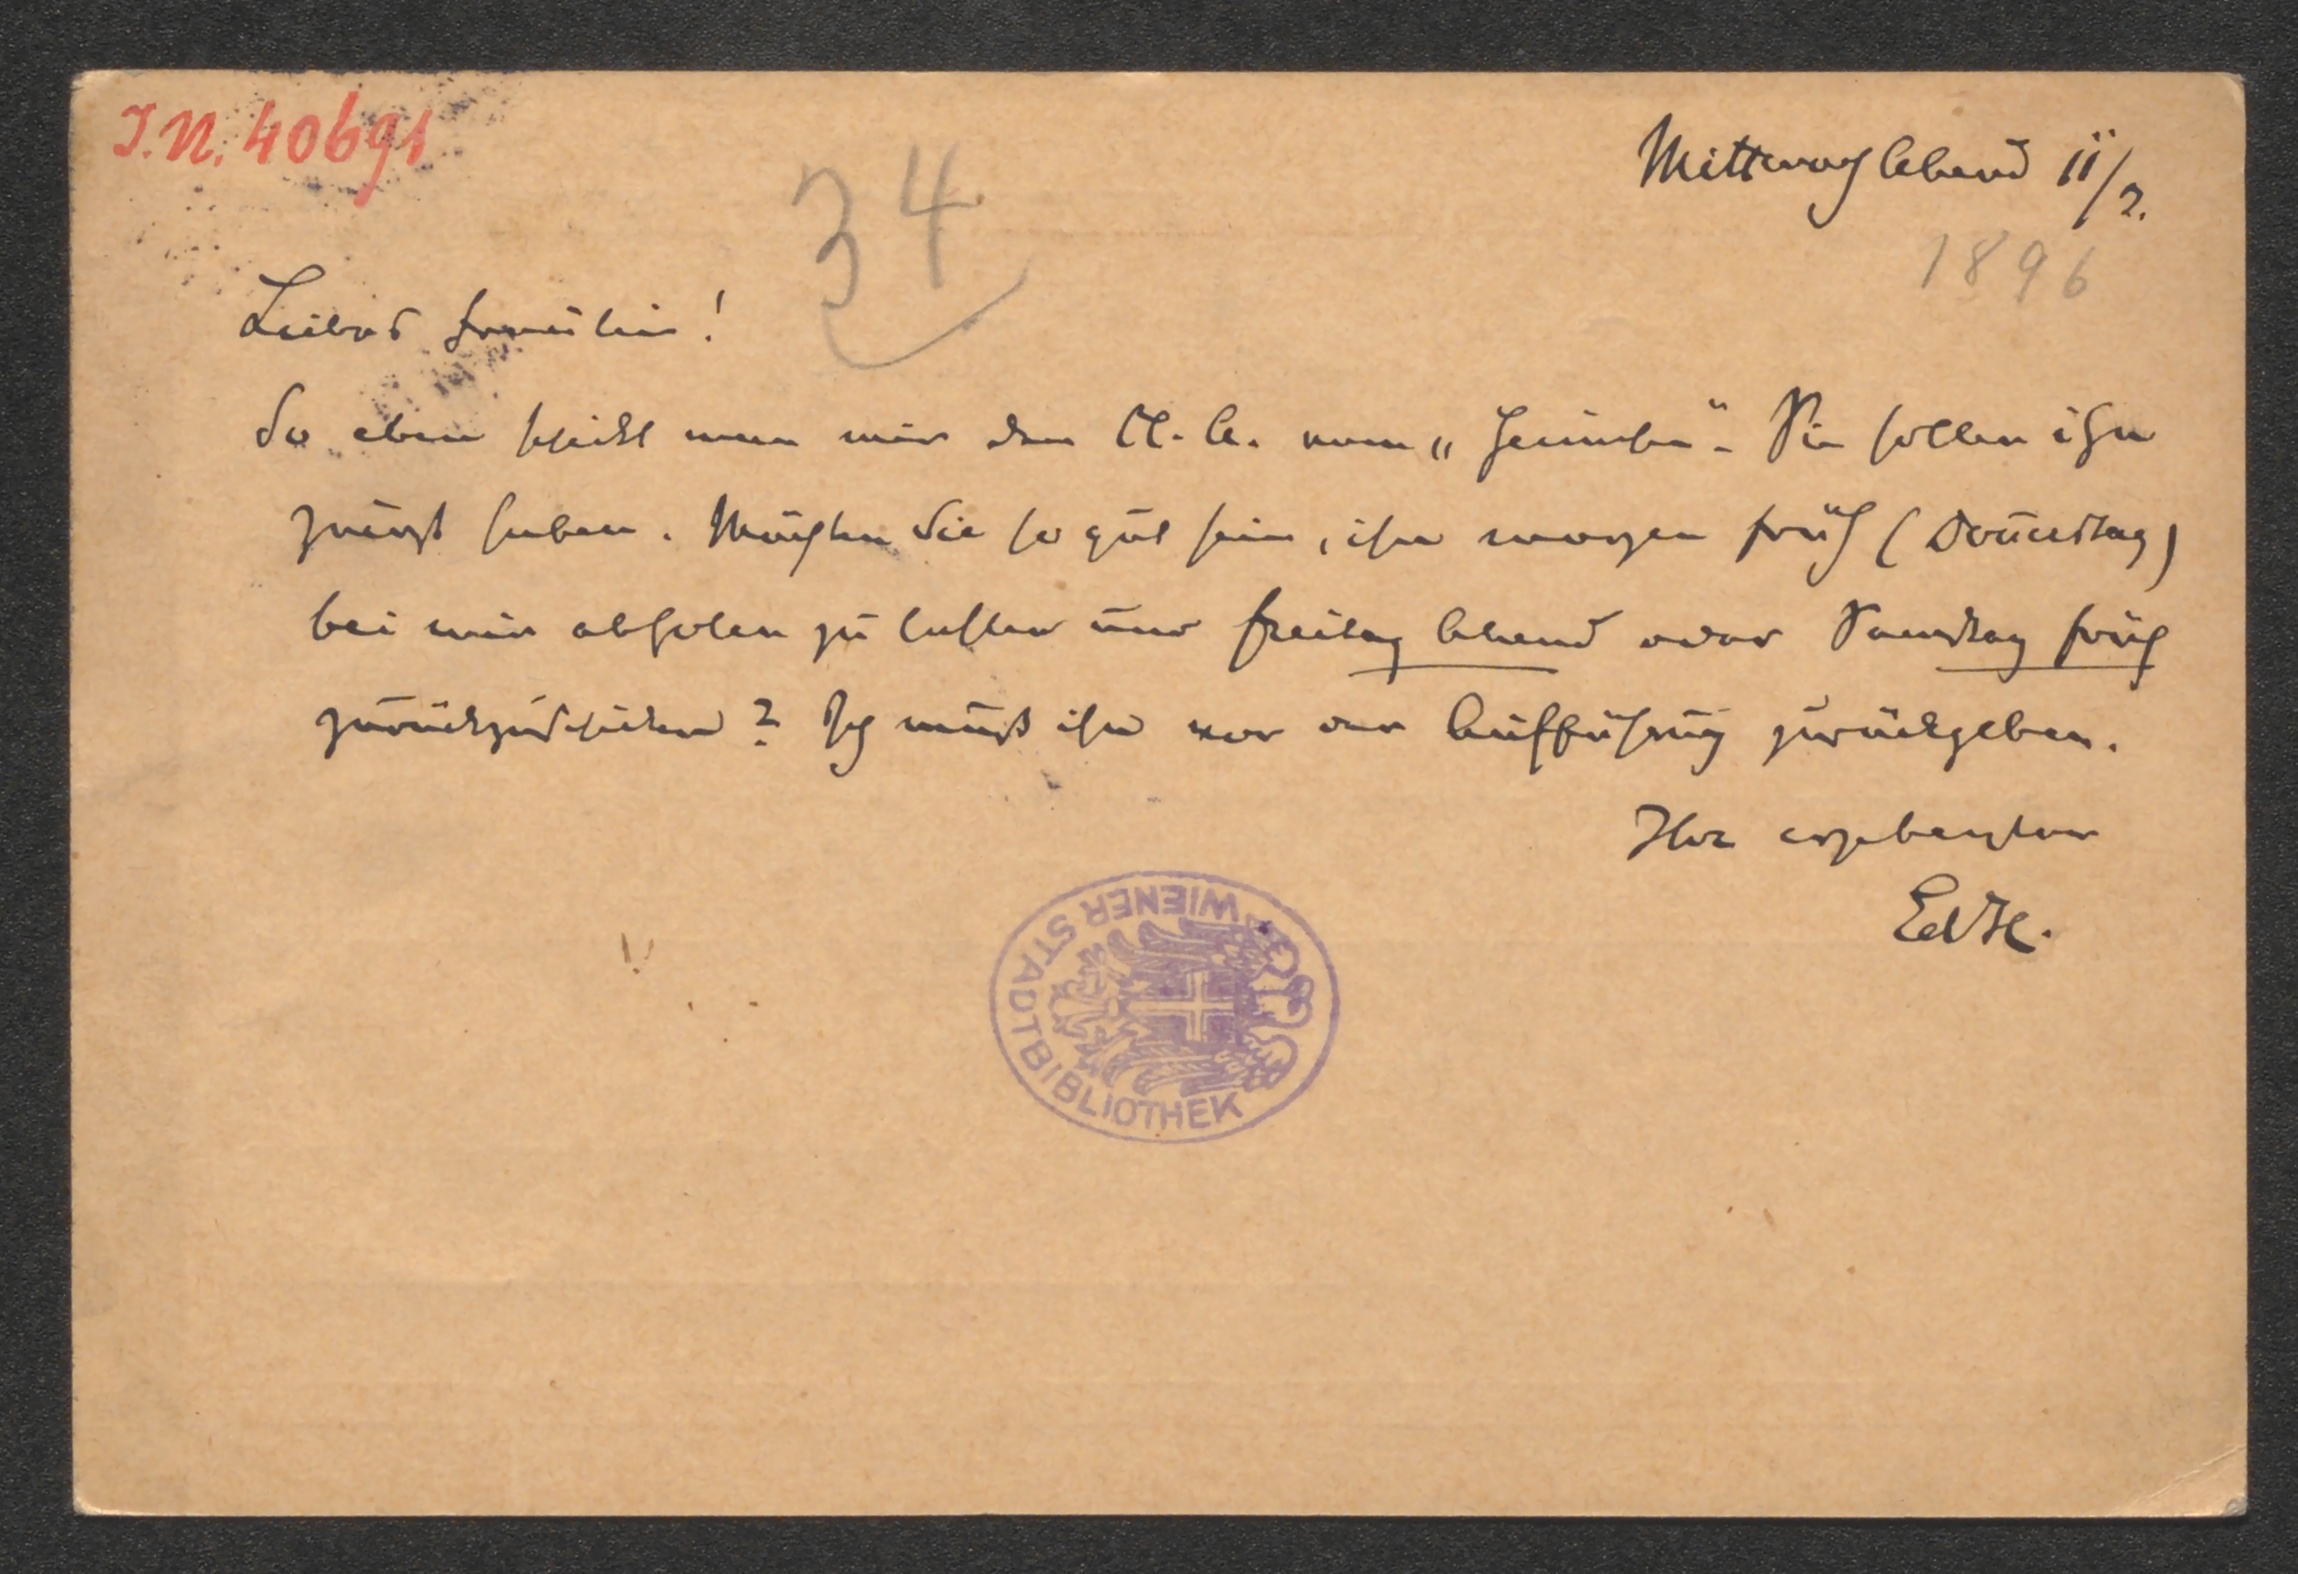 I.N. 40691
34
Mittwoch Abend 11/2.
1896
Liebes Fräulein!
So eben schickt man mir den Cl. A. vom „Heimchen“. Sie sollen ihn
zuerst haben. Möchten Sie so gut sein, ihn morgen früh (Donnerstag)
bei mir abholen zu lassen und Freitag Abend oder Samstag früh
zurückzuschicken? Ich muß ihn vor der Aufführung zurückgeben.
Ihr ergebenster
EdH.
WIENER STADTBIBLIOTHEK